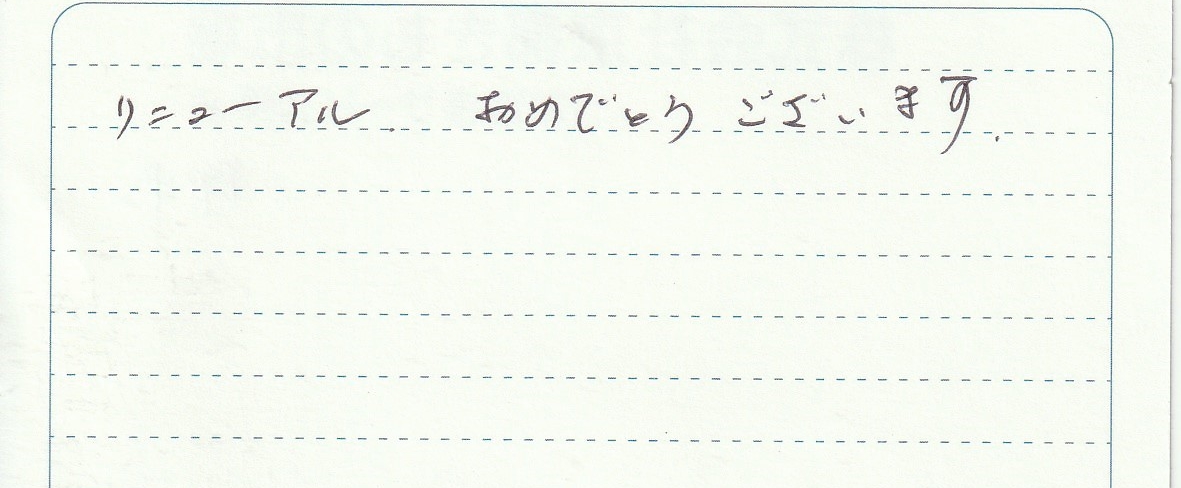 リニューアル. おめでとう ございます.